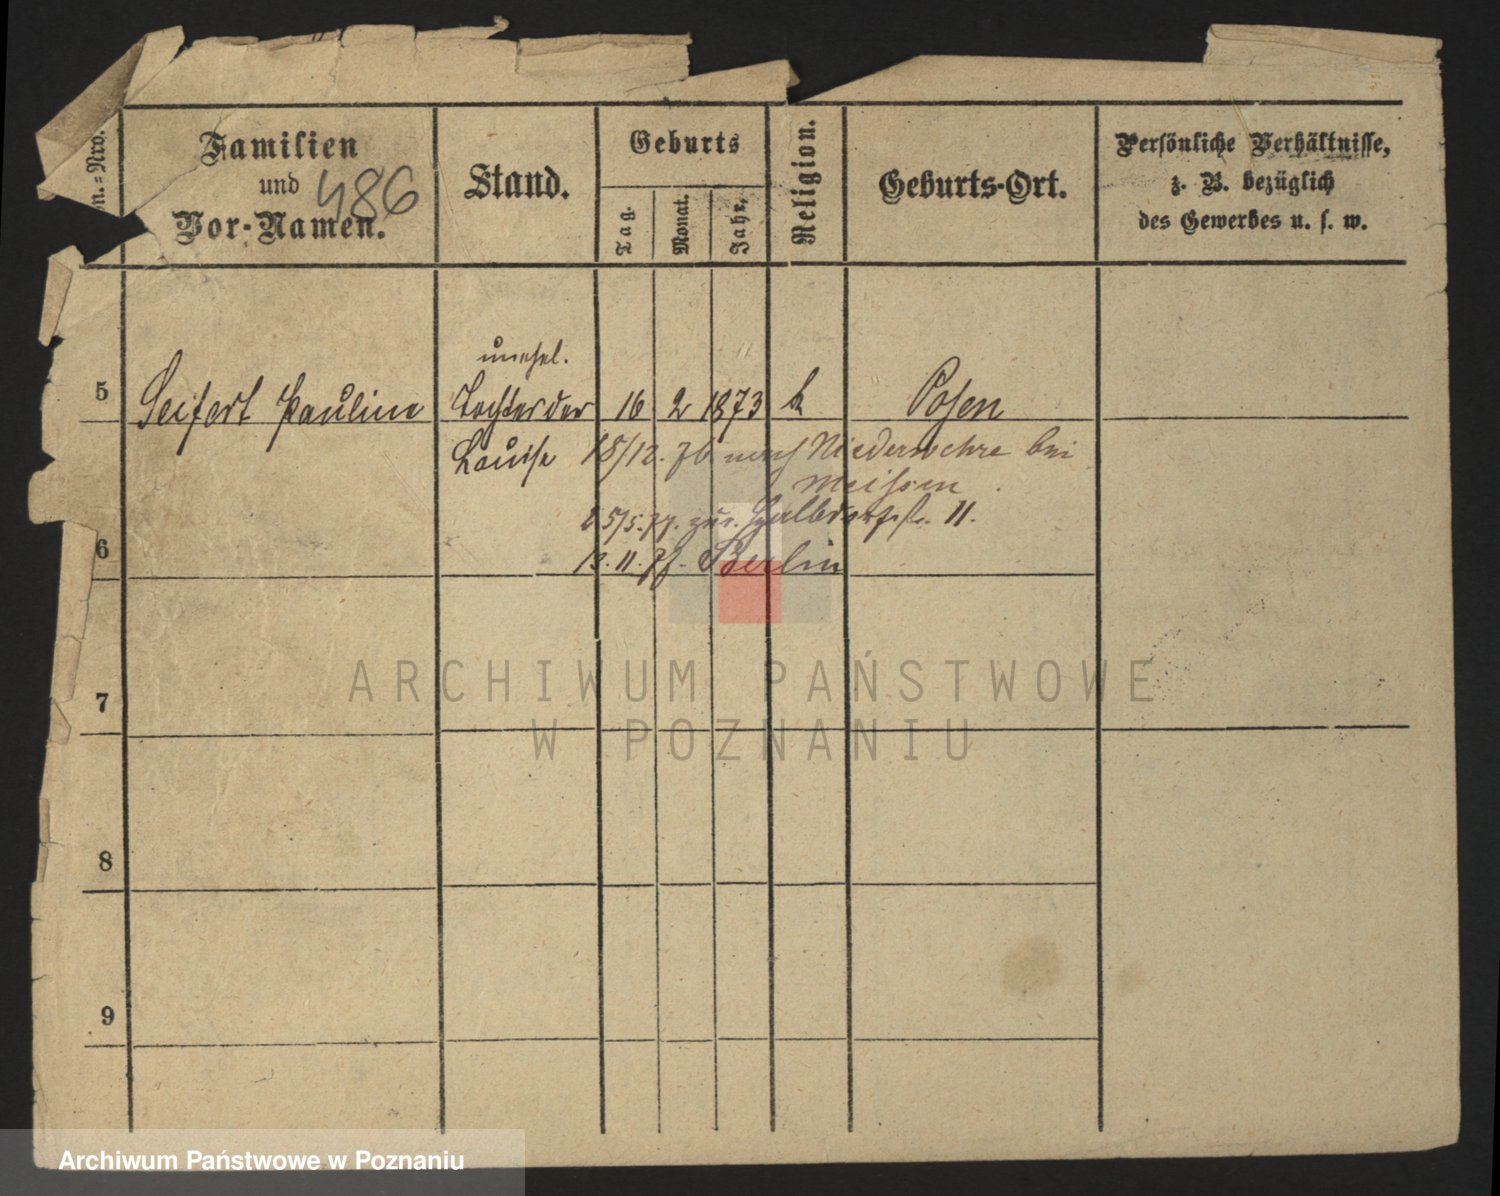 n.-Nro.
Familien
und
Vor-Namen.
486
Stand.
Geburts
Tag.
Monat.
Jahr.
Religion.
Geburts-Ort.
Persönliche Verhältnisse,
z. B. bezüglich
des Gewerbes u. s. w.
unehel.
5 Seifert Pauline Tochter der 16 2 1873 k Posen
Louise 18/12. 76 nach Niederwehre bei
Meissen.
5/5. 77. zur. Halbdorfstr. 11.
6 13. 11. Berlin
7
8
9
ARCHIWUM PAŃSTWOWE
W POZNANIU
Archiwum Państwowe w Poznaniu